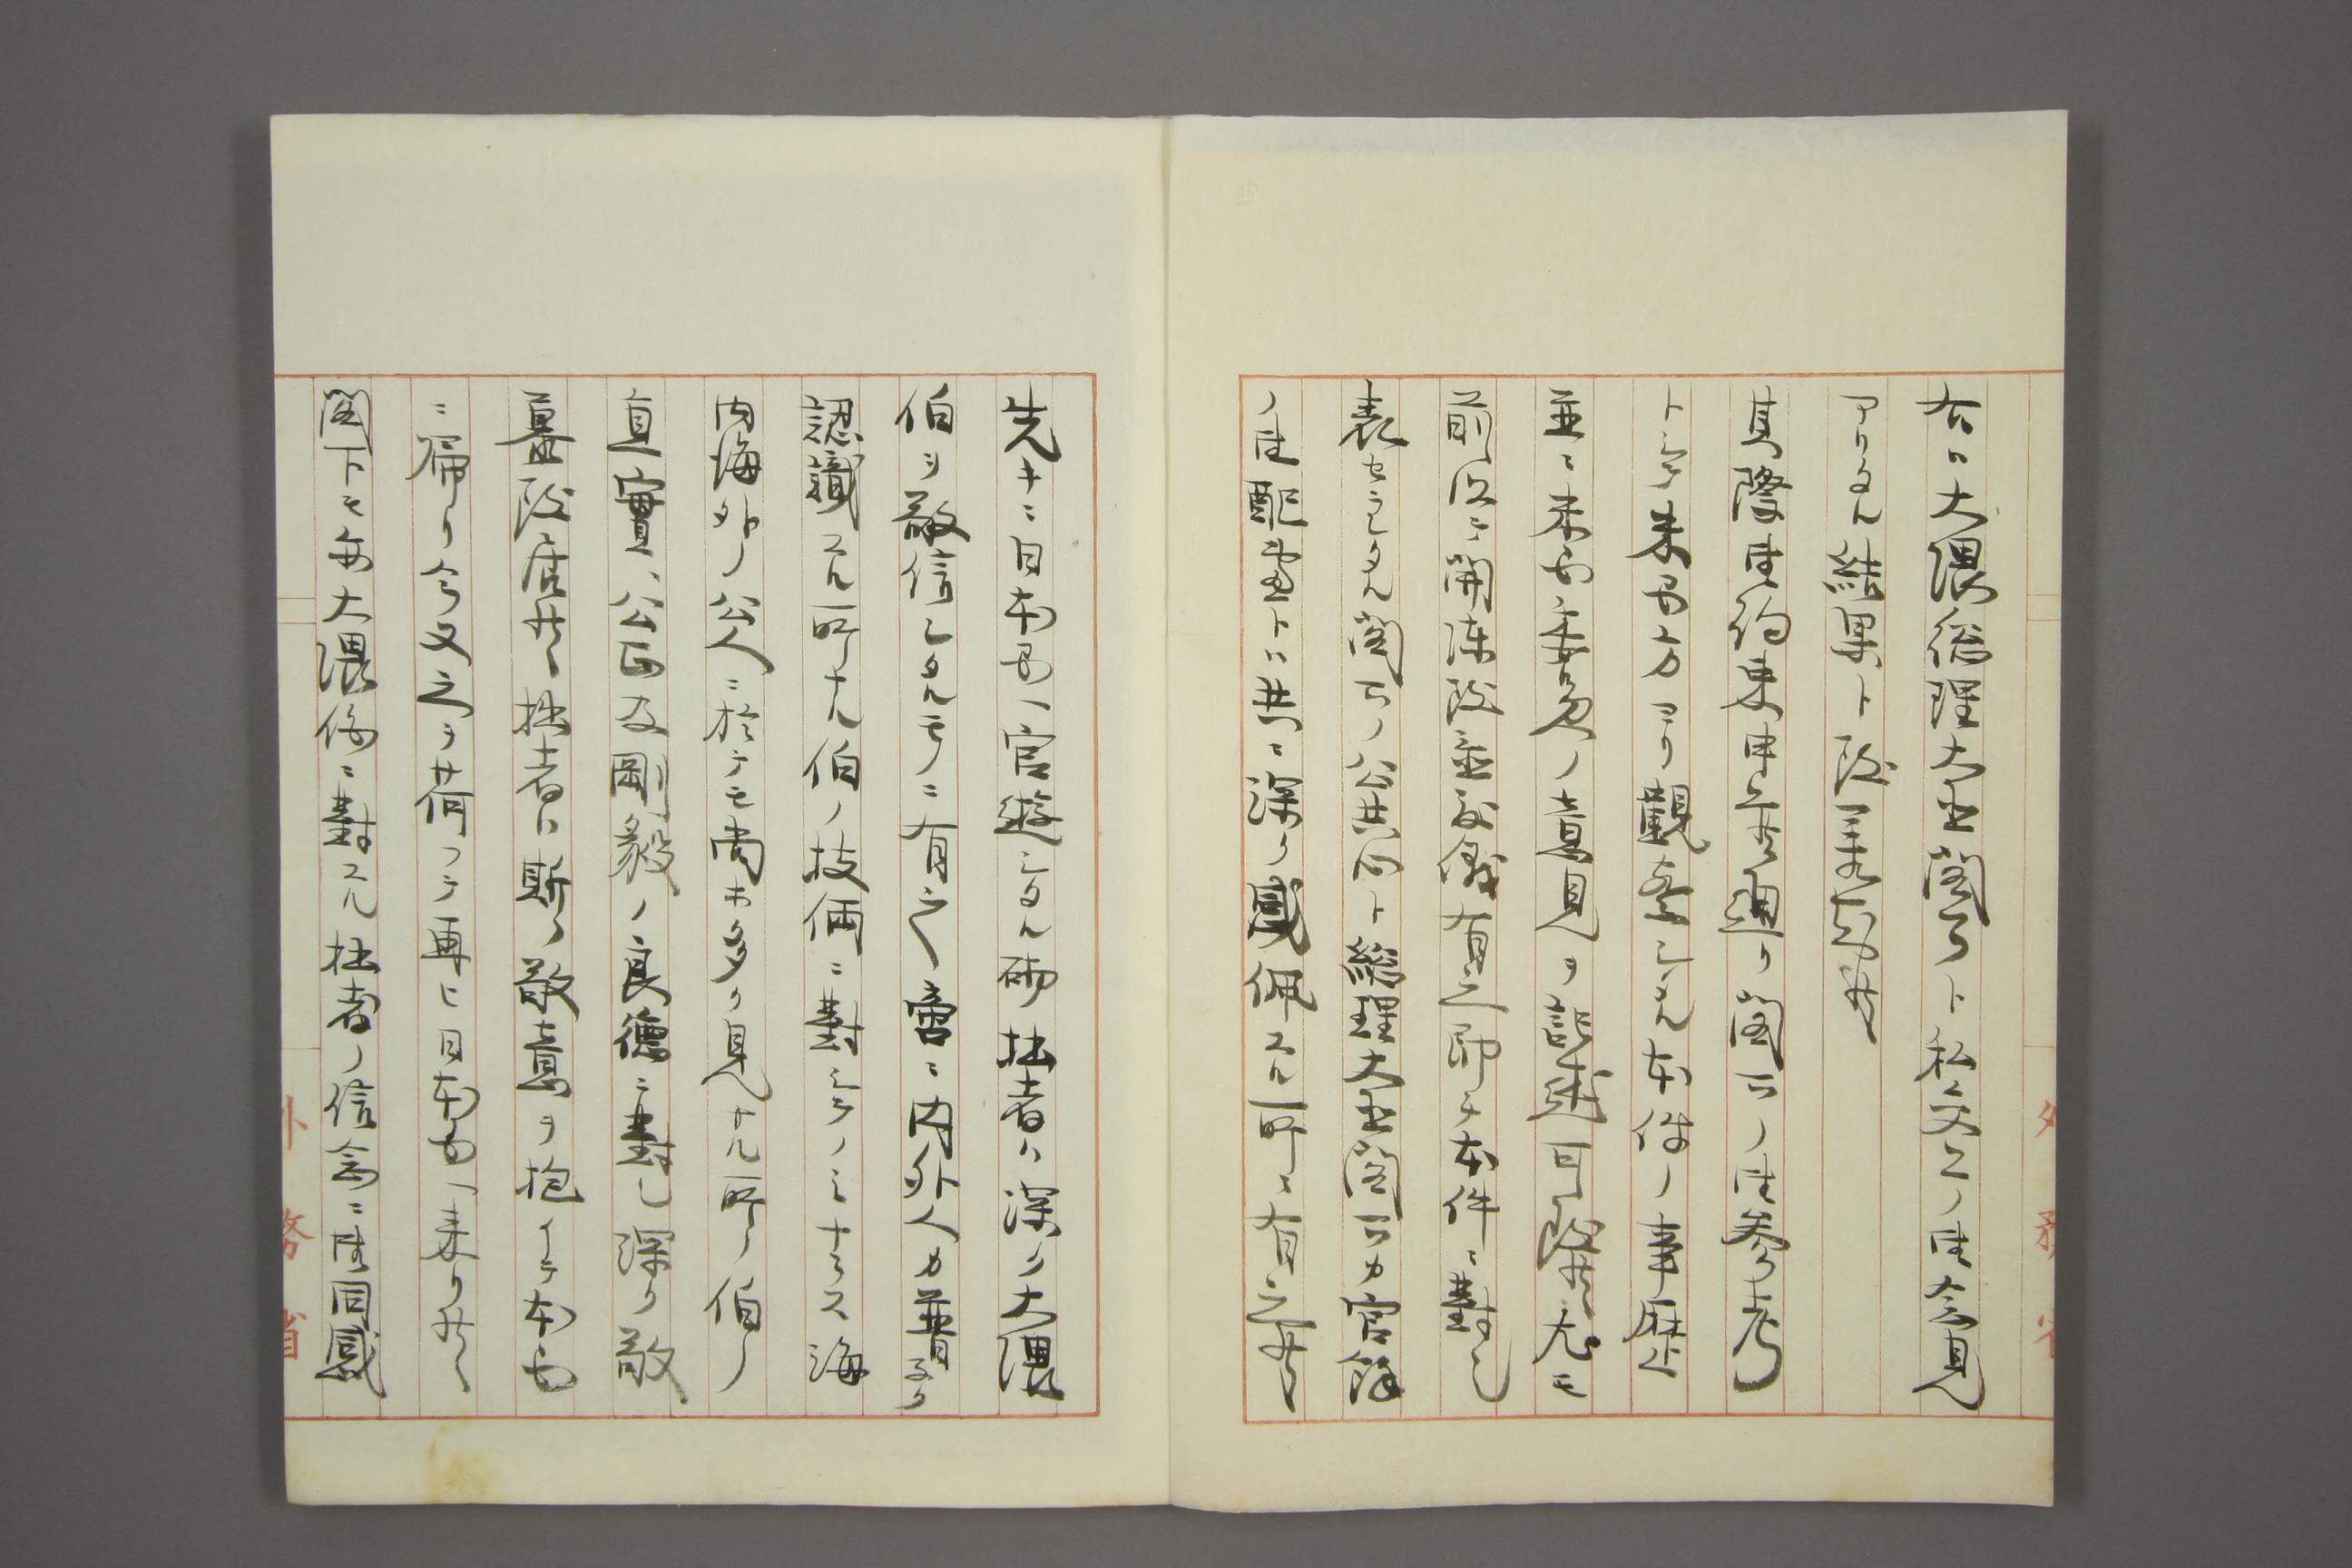 右ハ大隈総理大臣閣下ト私交上ノ御会見
アリタル結果ト致承知候
其際御約束申上候通リ閣下ノ御参考
トシテ米国方ヨリ観察シタル本件ノ事歴
並ニ米国委員ノ意見ヲ記述可致候尤モ
前以テ開陳致置度儀有之即チ本件ニ對シ
表セラレタル閣下ノ公共心ト総理大臣閣下カ官餘
ノ御配慮トハ共ニ深ク感佩スル所ニ有之候
先キニ日本国ヘ官遊シタル砌拙者ハ深ク大隈
伯ヲ敬信シタルモノニ有之啻ニ内外人カ普子ク
認識スル所ナル伯ノ技価ニ對シテノミナラス海
内海外ノ公人ニ於テモ尚ホ多ク見サル所ノ伯ノ
真實ハ公正及剛毅ノ良徳ニ對シ深ク敬
慕致居候拙者ハ斯ノ敬意ヲ抱イテ本国
ニ帰リ今又之ヲ荷フテ再ヒ日本国ヘ来リ候
閣下モ亦大隈伯ニ對スル拙者ノ信念ニ御同感
外務省
外務省